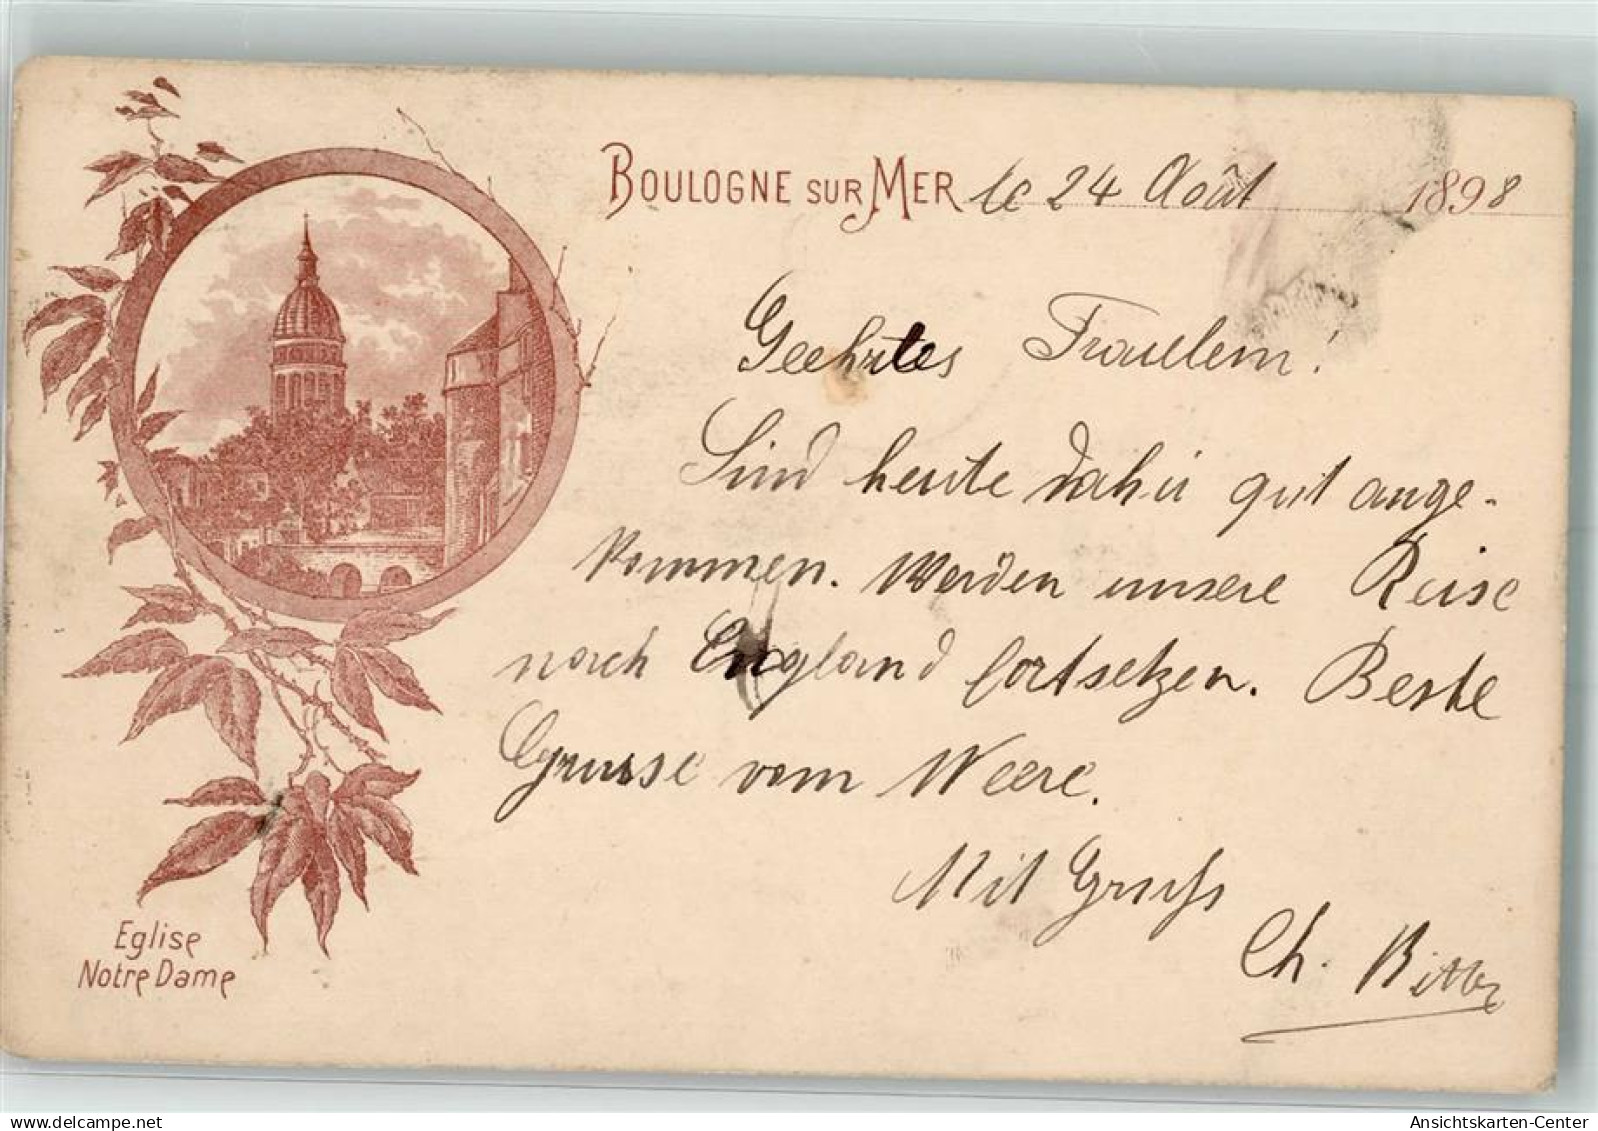 BOULOGNE SUR MER le 24 Août 1898
Geehrtes Fraulein!
Sind heute dahir gut ange-
kommen. Werden unsere Reise
nach England fortsetzen. Beste
Grusse vom Meere.
Mit Gruss
Ch.
Eglise
Notre Dame
Ansichtskarten-Center